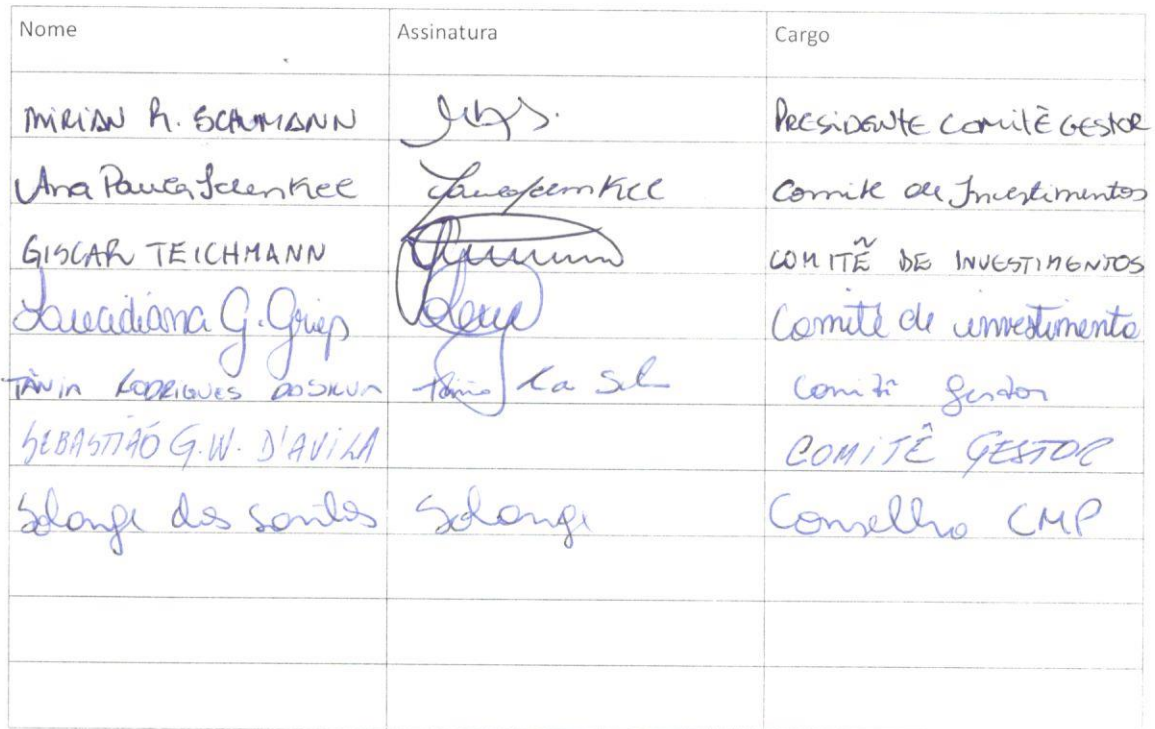 Nome Assinatura Cargo
MIRIAN R. SCHUMANN PRESIDENTE COMITÊ GESTOR
Ana Paula Schenkel Comite de Investimentos
GISCAR TEICHMANN COMITÊ DE INVESTIMENTOS
G. Griep Comitê de investimento
TÂNIA RODRIGUES DA SILVA Tânia da Sil Comitê Gestor
SEBASTIÃO G.W. D'AVILA COMITÊ GESTOR
Solange dos Santos Solange Conselho CMP